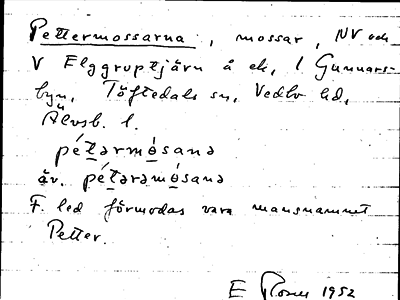 Pettermossarna, mossar, NV och
V Elggruptjärn å ek, 1 Gunnars-
byn, Töftedals sn, Vedbo hd,
Älvsb. l.
pétərmòsanə
äv. pétərəmòsanə
F. led förmodas vara mansnamnet
Petter.
E 1952